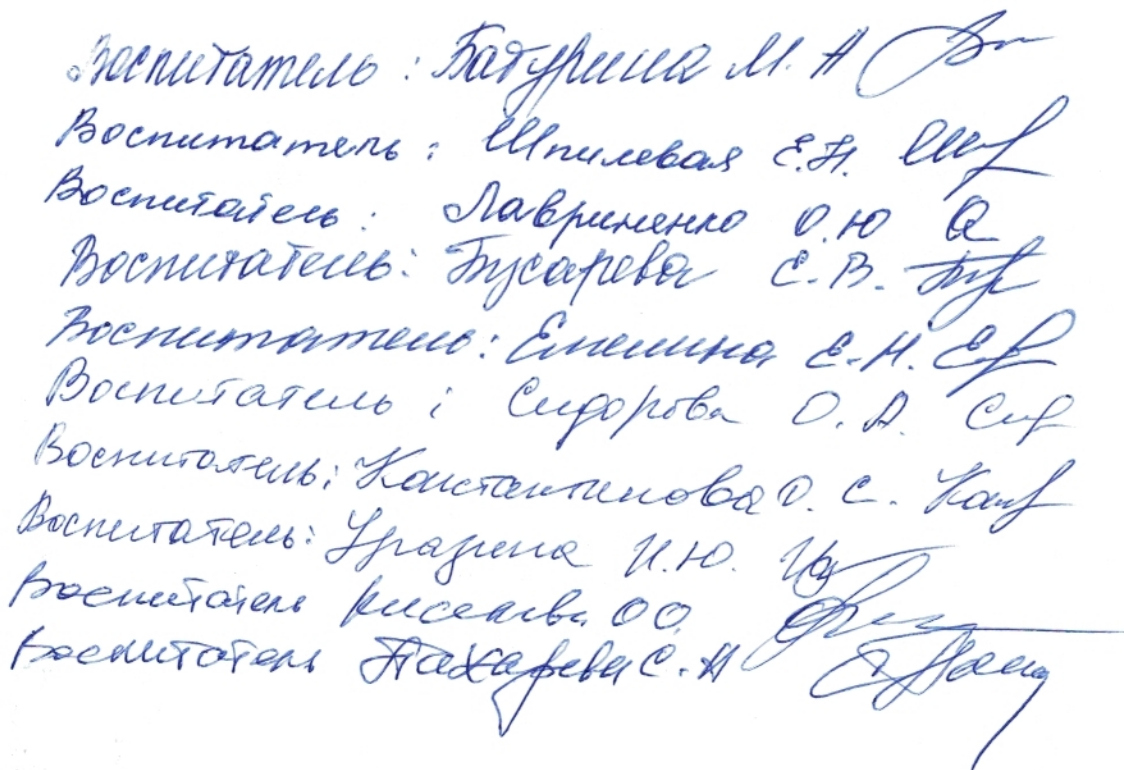 Воспитатель: Батурина М. А
Воспитатель: Шпилевая Е.Н.
Воспитатель: Лавриненко О.Ю
Воспитатель: Гусарева Е.В.
Воспитатель: Емелина Е.Н.
Воспитатель: Сидорова О.А.
Воспитатель: Константинова О.С.
Воспитатель: Уразина И.Ю.
Воспитатель Киселева О.О.
Воспитатель С.Н